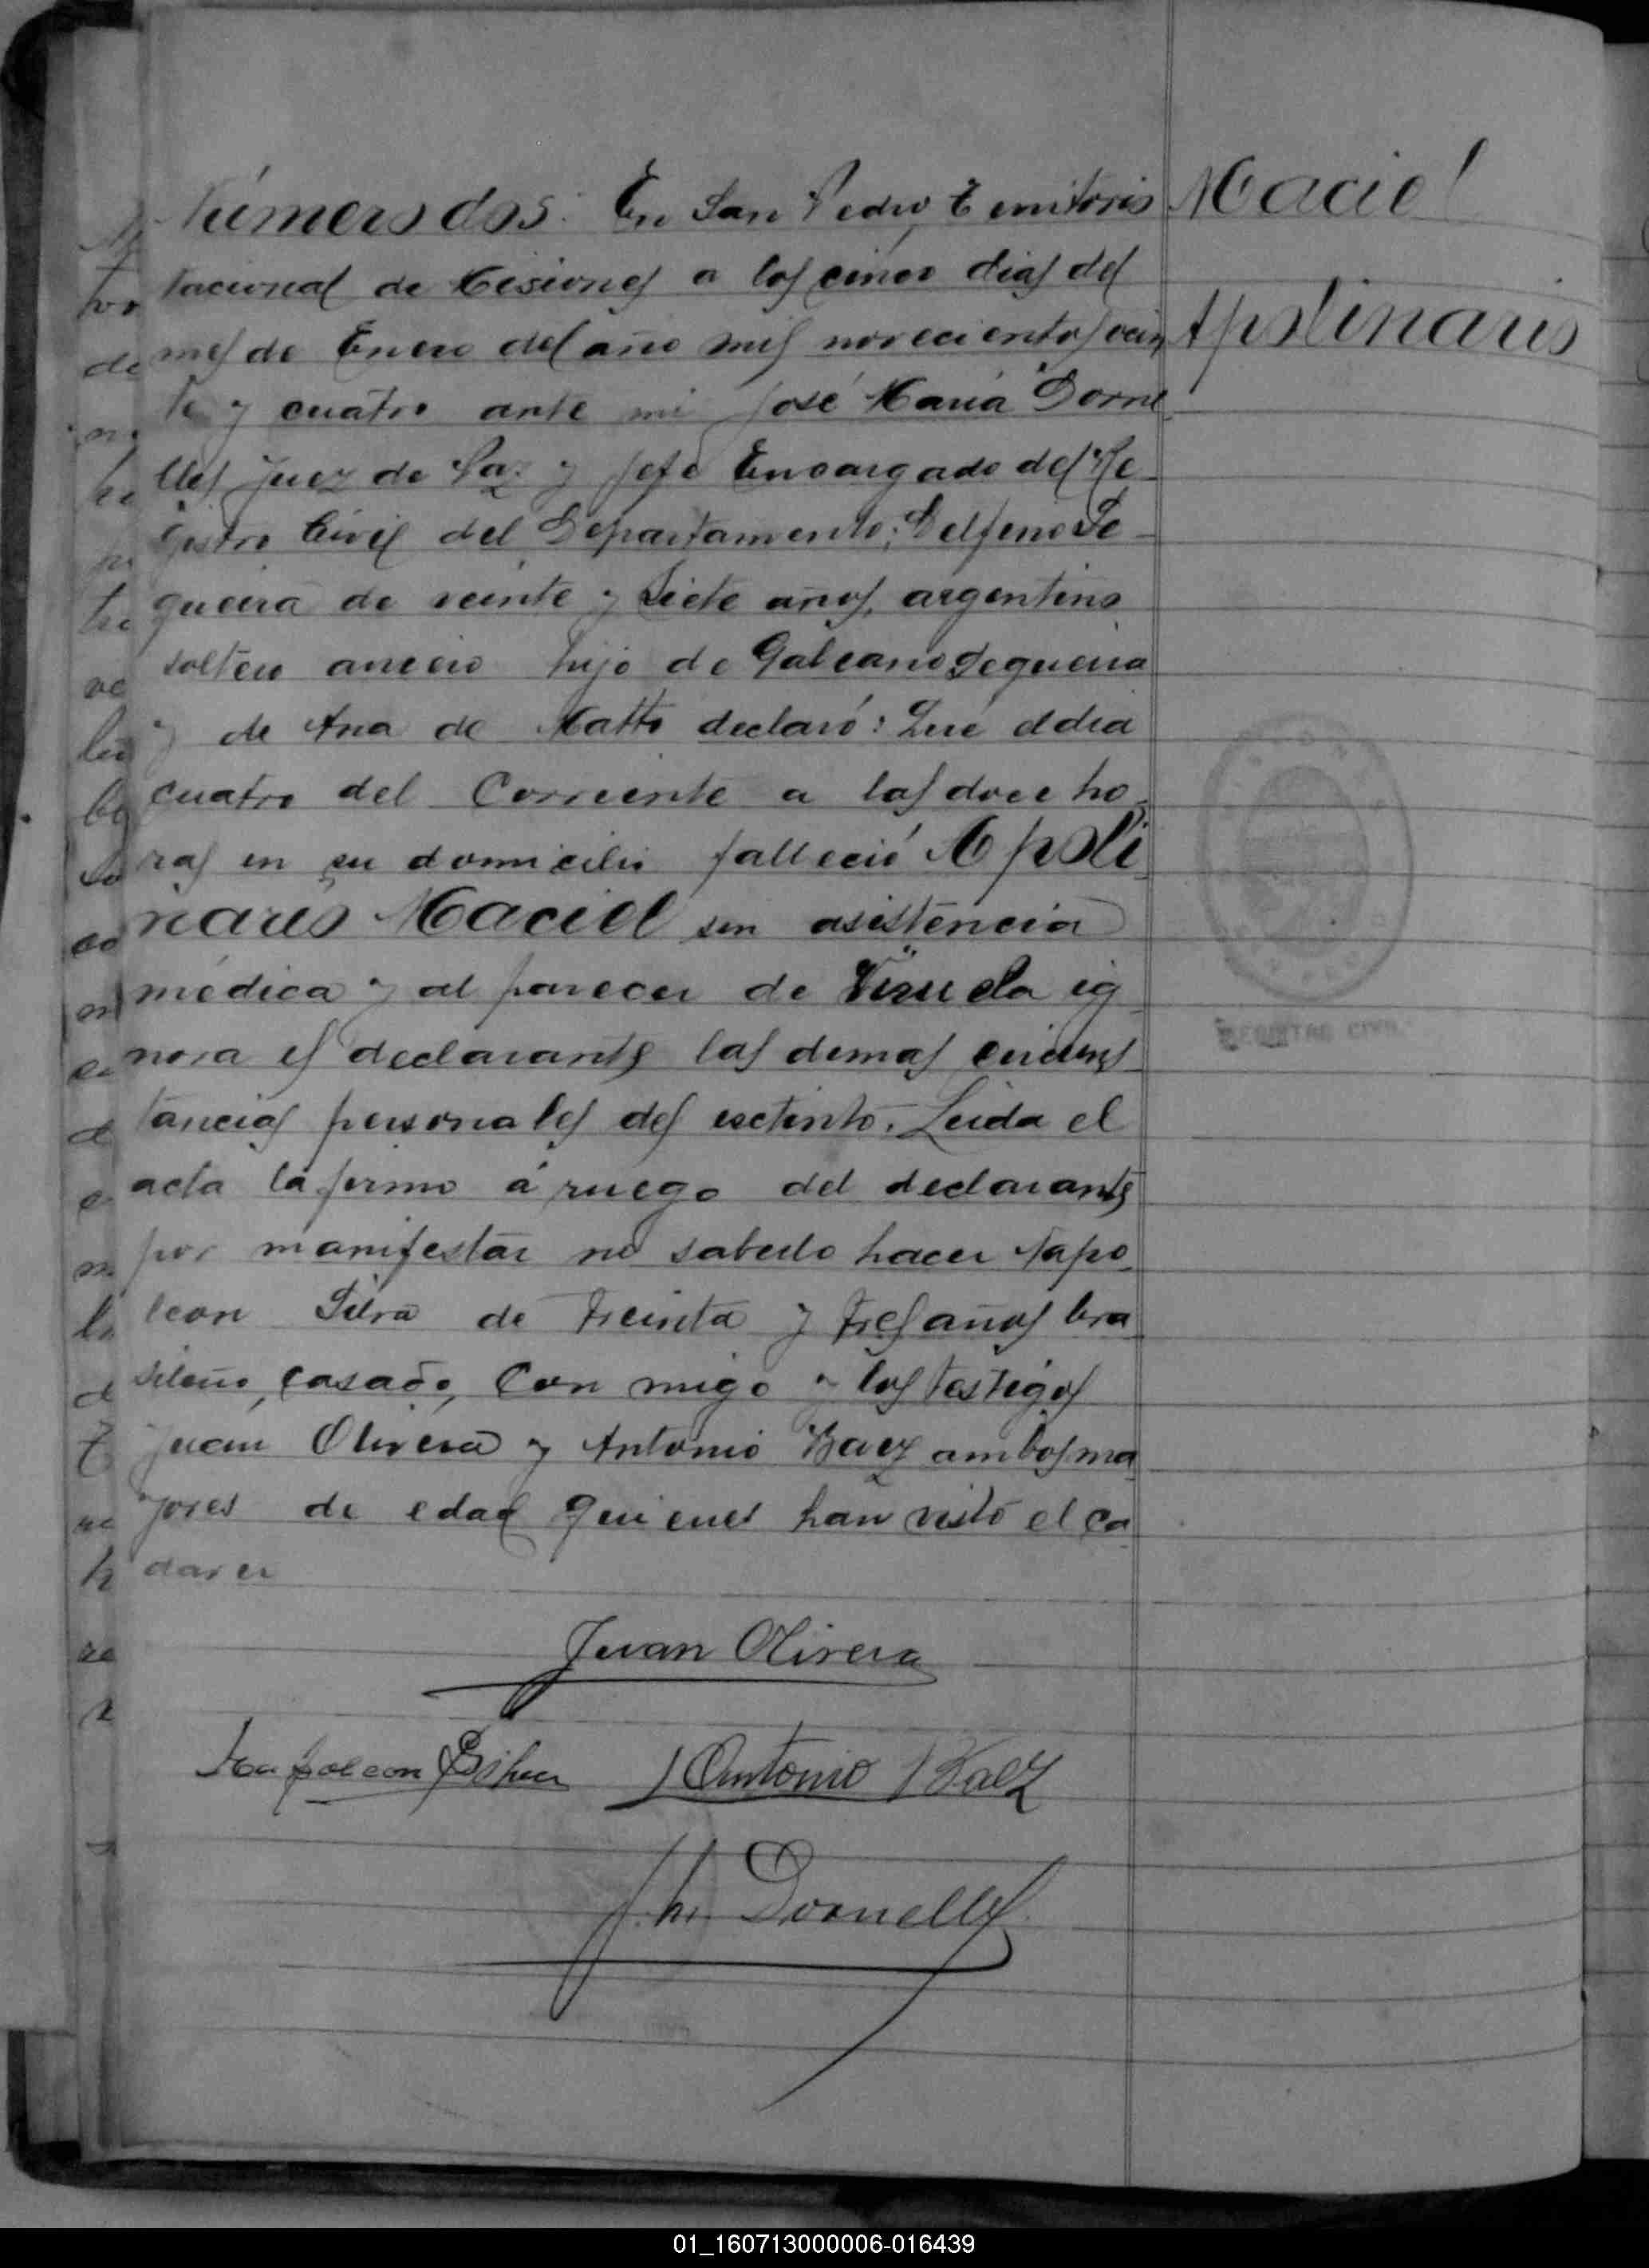 Número dos: En San Pedro, Territorio
Nacional de Misiones a los cinco dias del
mes de Enero del año mil novecientos vein
te y cuatro ante mi José María Dorne
lles Juez de Paz y Jefe Encargado del Re-
gistro Civil del Departamento; Delfino Se-
queira de veinte y siete años, argentino
soltero hijo de Galeano Sequeira
y de Ana de Matto declaró: Que el dia
cuatro del Corriente a las doce ho-
ras en su domicilio falleció Apoli
nario Maciel sin asistencia
médica y al parecer de Viruela ig
nora el declarante las demas circuns
tancias personales del esctinto. Leida el
acta la firmo á ruego del declarante
por manifestar no saberlo hacer Napo-
leon Silva de treinta y tres años bra
sileño, casado, Con migo y los testigos
Juan Olivera y Antonio Baez ambos ma
yores de edad quienes han visto el ca
daver
Maciel
Apolinario
REGISTRO CIVIL
Juan Olivera
Napoleon Silva Antonio Baez
J. M. Dornelles
01_160713000006-016439